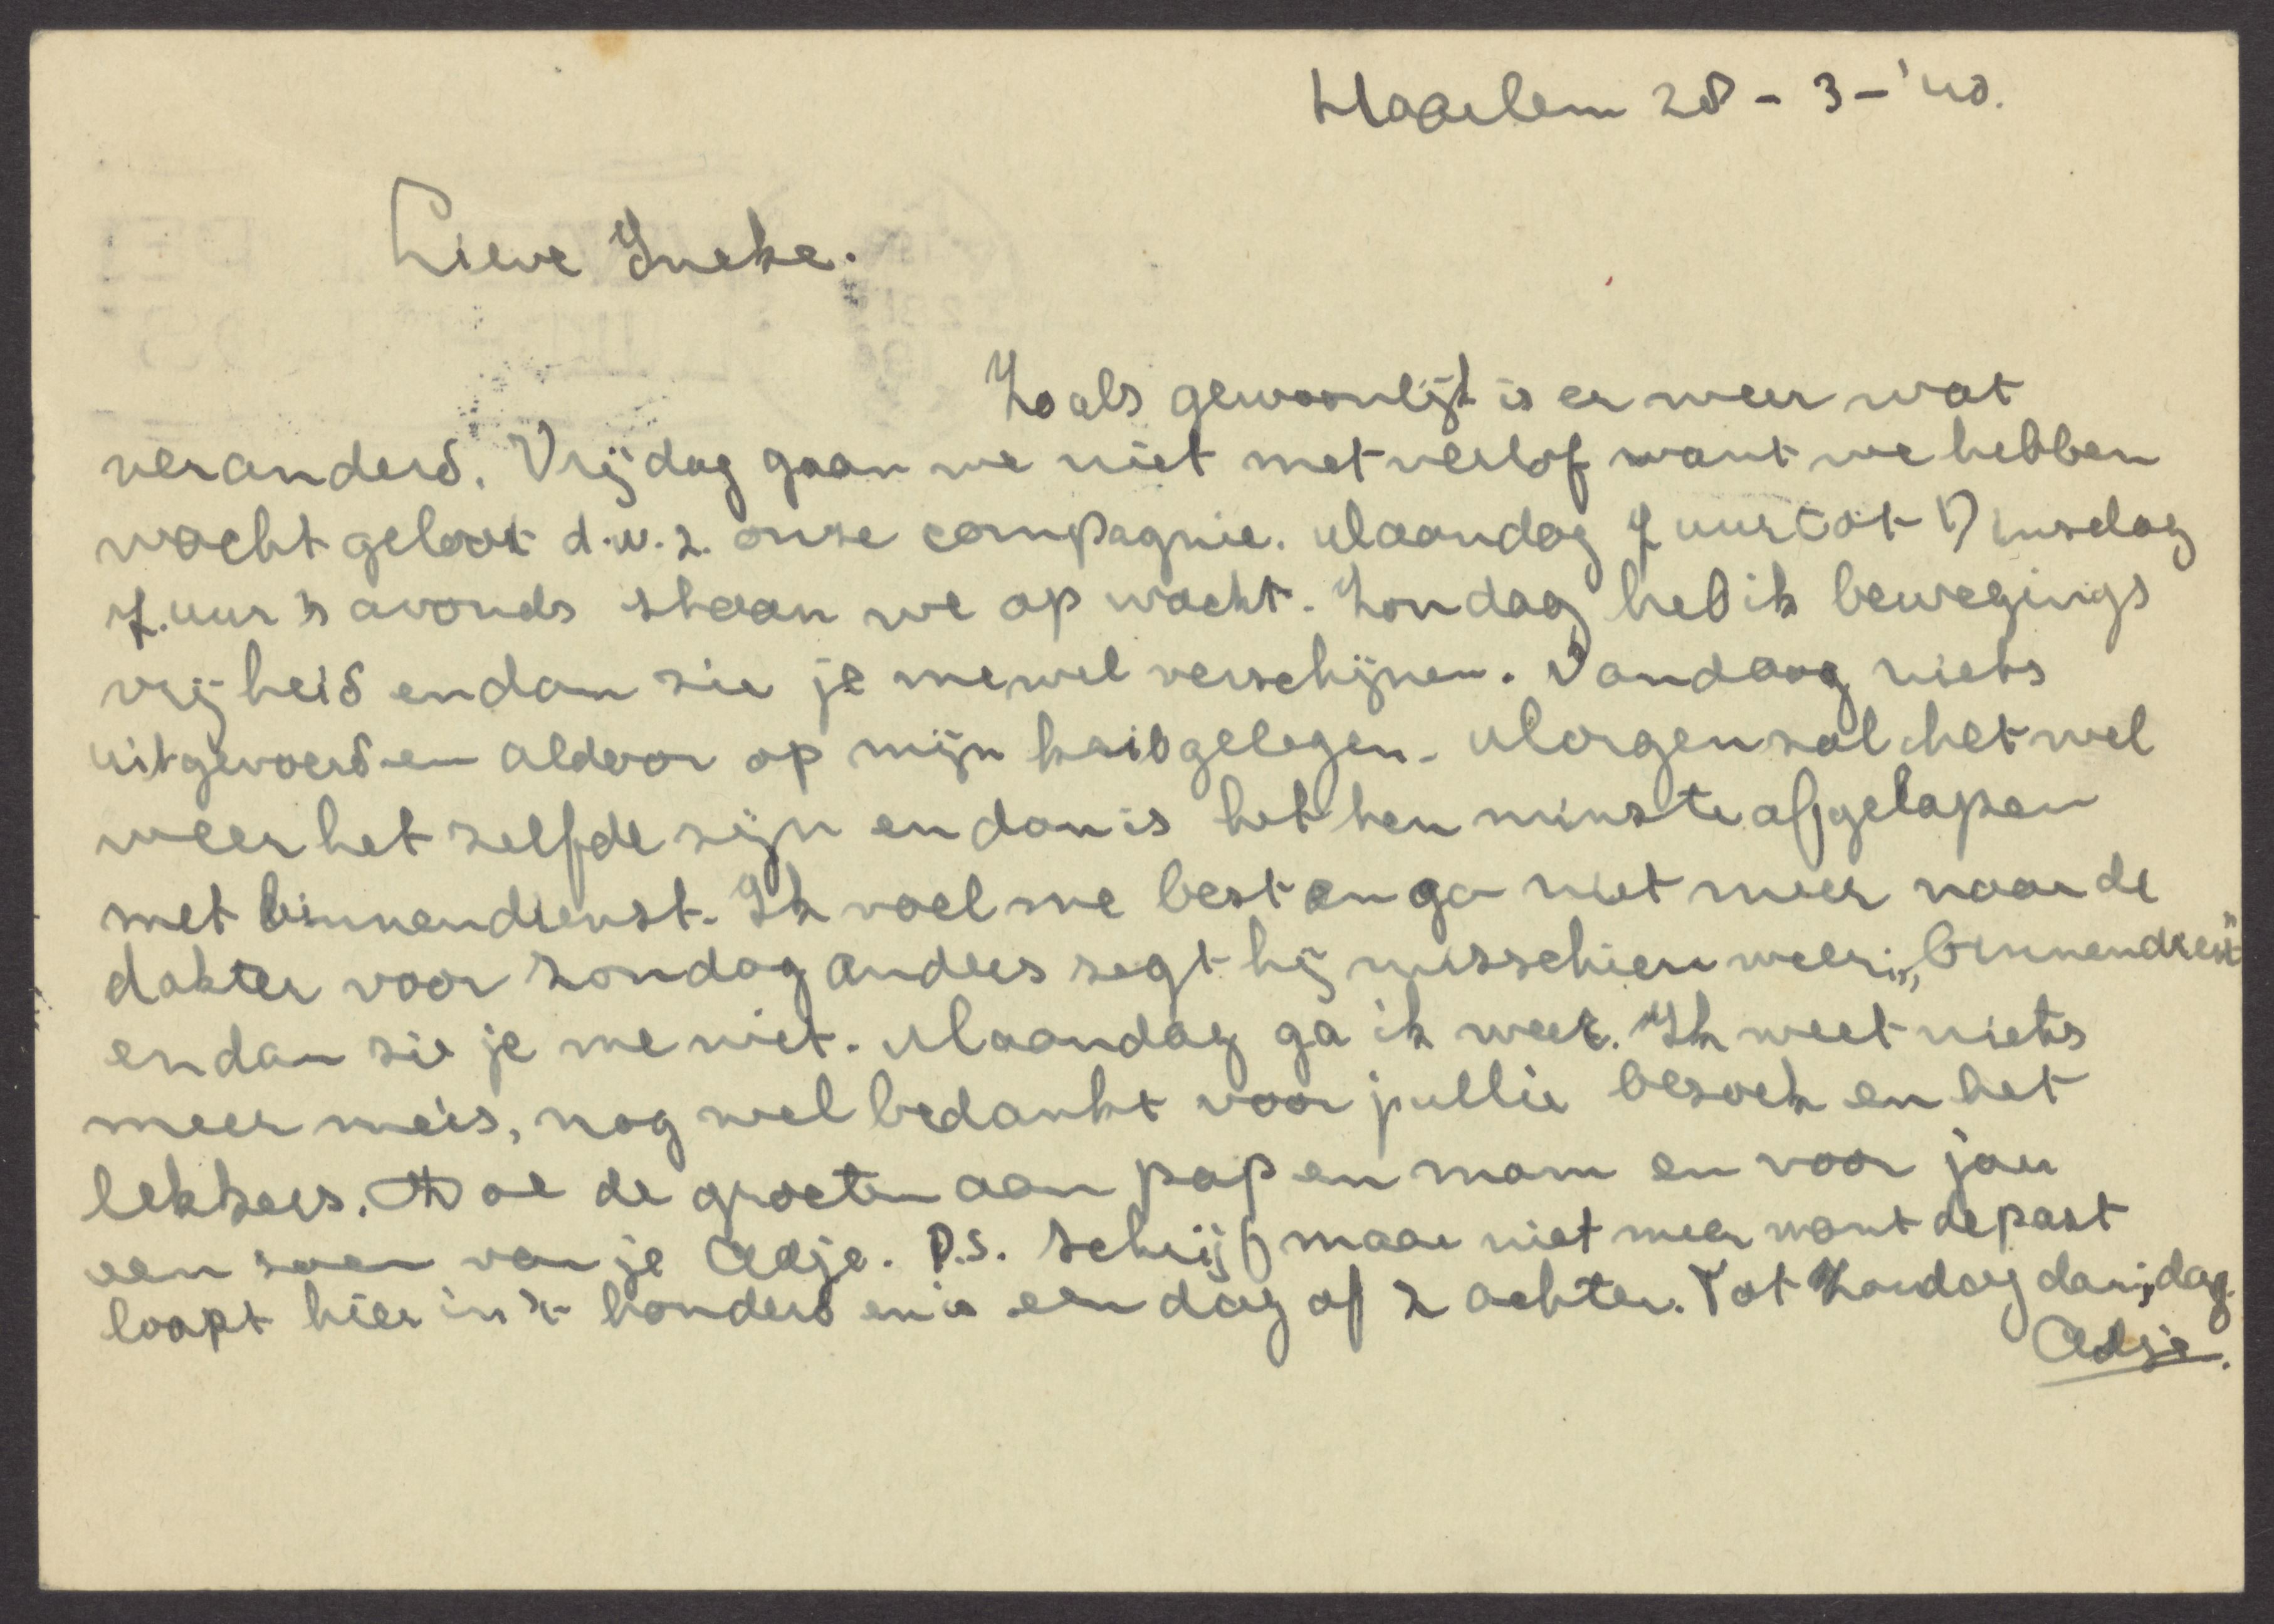 Haarlem 28 - 3 - '40.
Lieve Ineke.
Zoals gewoonlijk is er weer wat
veranderd. Vrijdag gaan we niet met verlof want we hebben
wacht geloot d.w.z. onze compagnie. Maandag 7 uur tot Dinsdag
7. uur 's avonds staan we op wacht. Zondag heb ik bewegings
vrijheid en dan zie je me wel verschijnen. Vandaag niets
uitgevoerd en aldoor op mijn krib gelegen. Morgen zal het wel
weer het zelfde zijn en dan is het ten minste afgelopen
met binnendienst. Ik voel me best en ga niet meer naar de
dokter voor Zondag anders zegt hij misschien weer: „binnendienst"
en dan zie je me niet. Maandag ga ik weer. Ik weet niets
meer meis, nog wel bedankt voor jullie bezoek en het
lekkers. Doe de groeten aan pap en mam en voor jou
een zoen van je Adje. P.S. Schrijf maar niet meer want de post
loopt hier in 't honderd en is een dag of 2 achter. Tot Zondag dan; dag.
Adje.